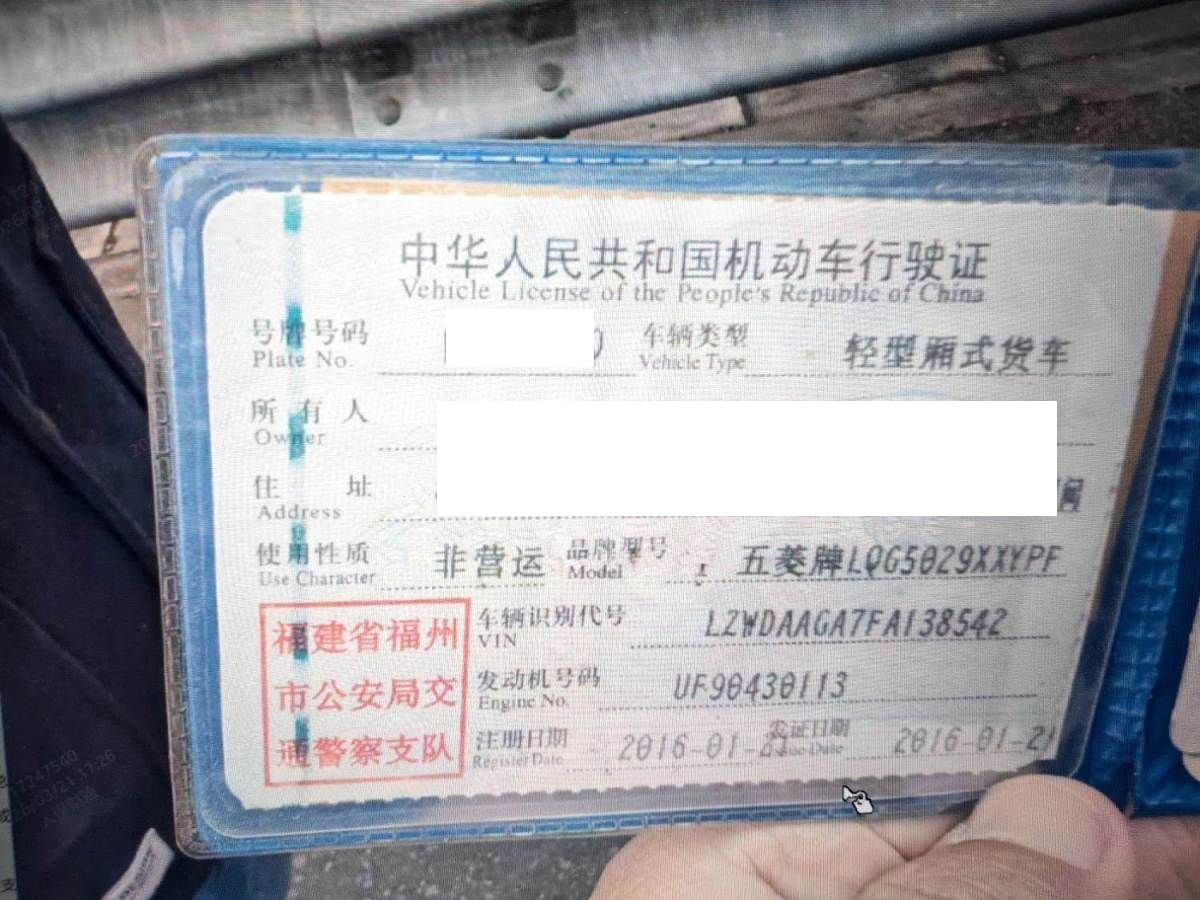 中华人民共和国机动车行驶证
Vehicle License of the People's Republic of China
号牌号码 车辆类型 轻型厢式货车
Plate No. Vehicle Type
所有人
Owner
住址
Address
使用性质 非营运 品牌型号 五菱牌LQG5029XXYPF
Use Character Model
福建省福州
市公安局交
通警察支队
车辆识别代号 LZWDAAGA7FA138542
VIN
发动机号码 UF90430113
Engine No.
注册日期 2016-01-21 发证日期 2016-01-21
Register Date Issue Date